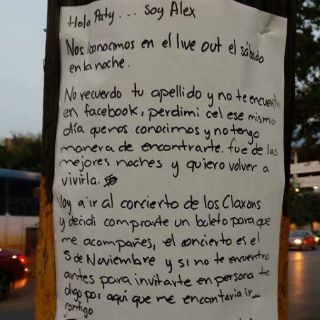 Hola Paty... Soy Alex
Nos conocimos en el live out el sábado
en la noche.
No recuerdo tu apellido y no te encuentro
en facebook, perdi mi cel ese mismo
día que nos conocimos y no tengo
manera de encontrarte. fue de las
mejores noches y quiero volver a
vivirla.
Voy a ir al concierto de los Claxons
y decidi comprarte un boleto para que
me acompañes, el concierto es el
5 de Noviembre y si no te encuentro
antes para invitarte en persona te
digo por aquí que me encantaría ir
contigo